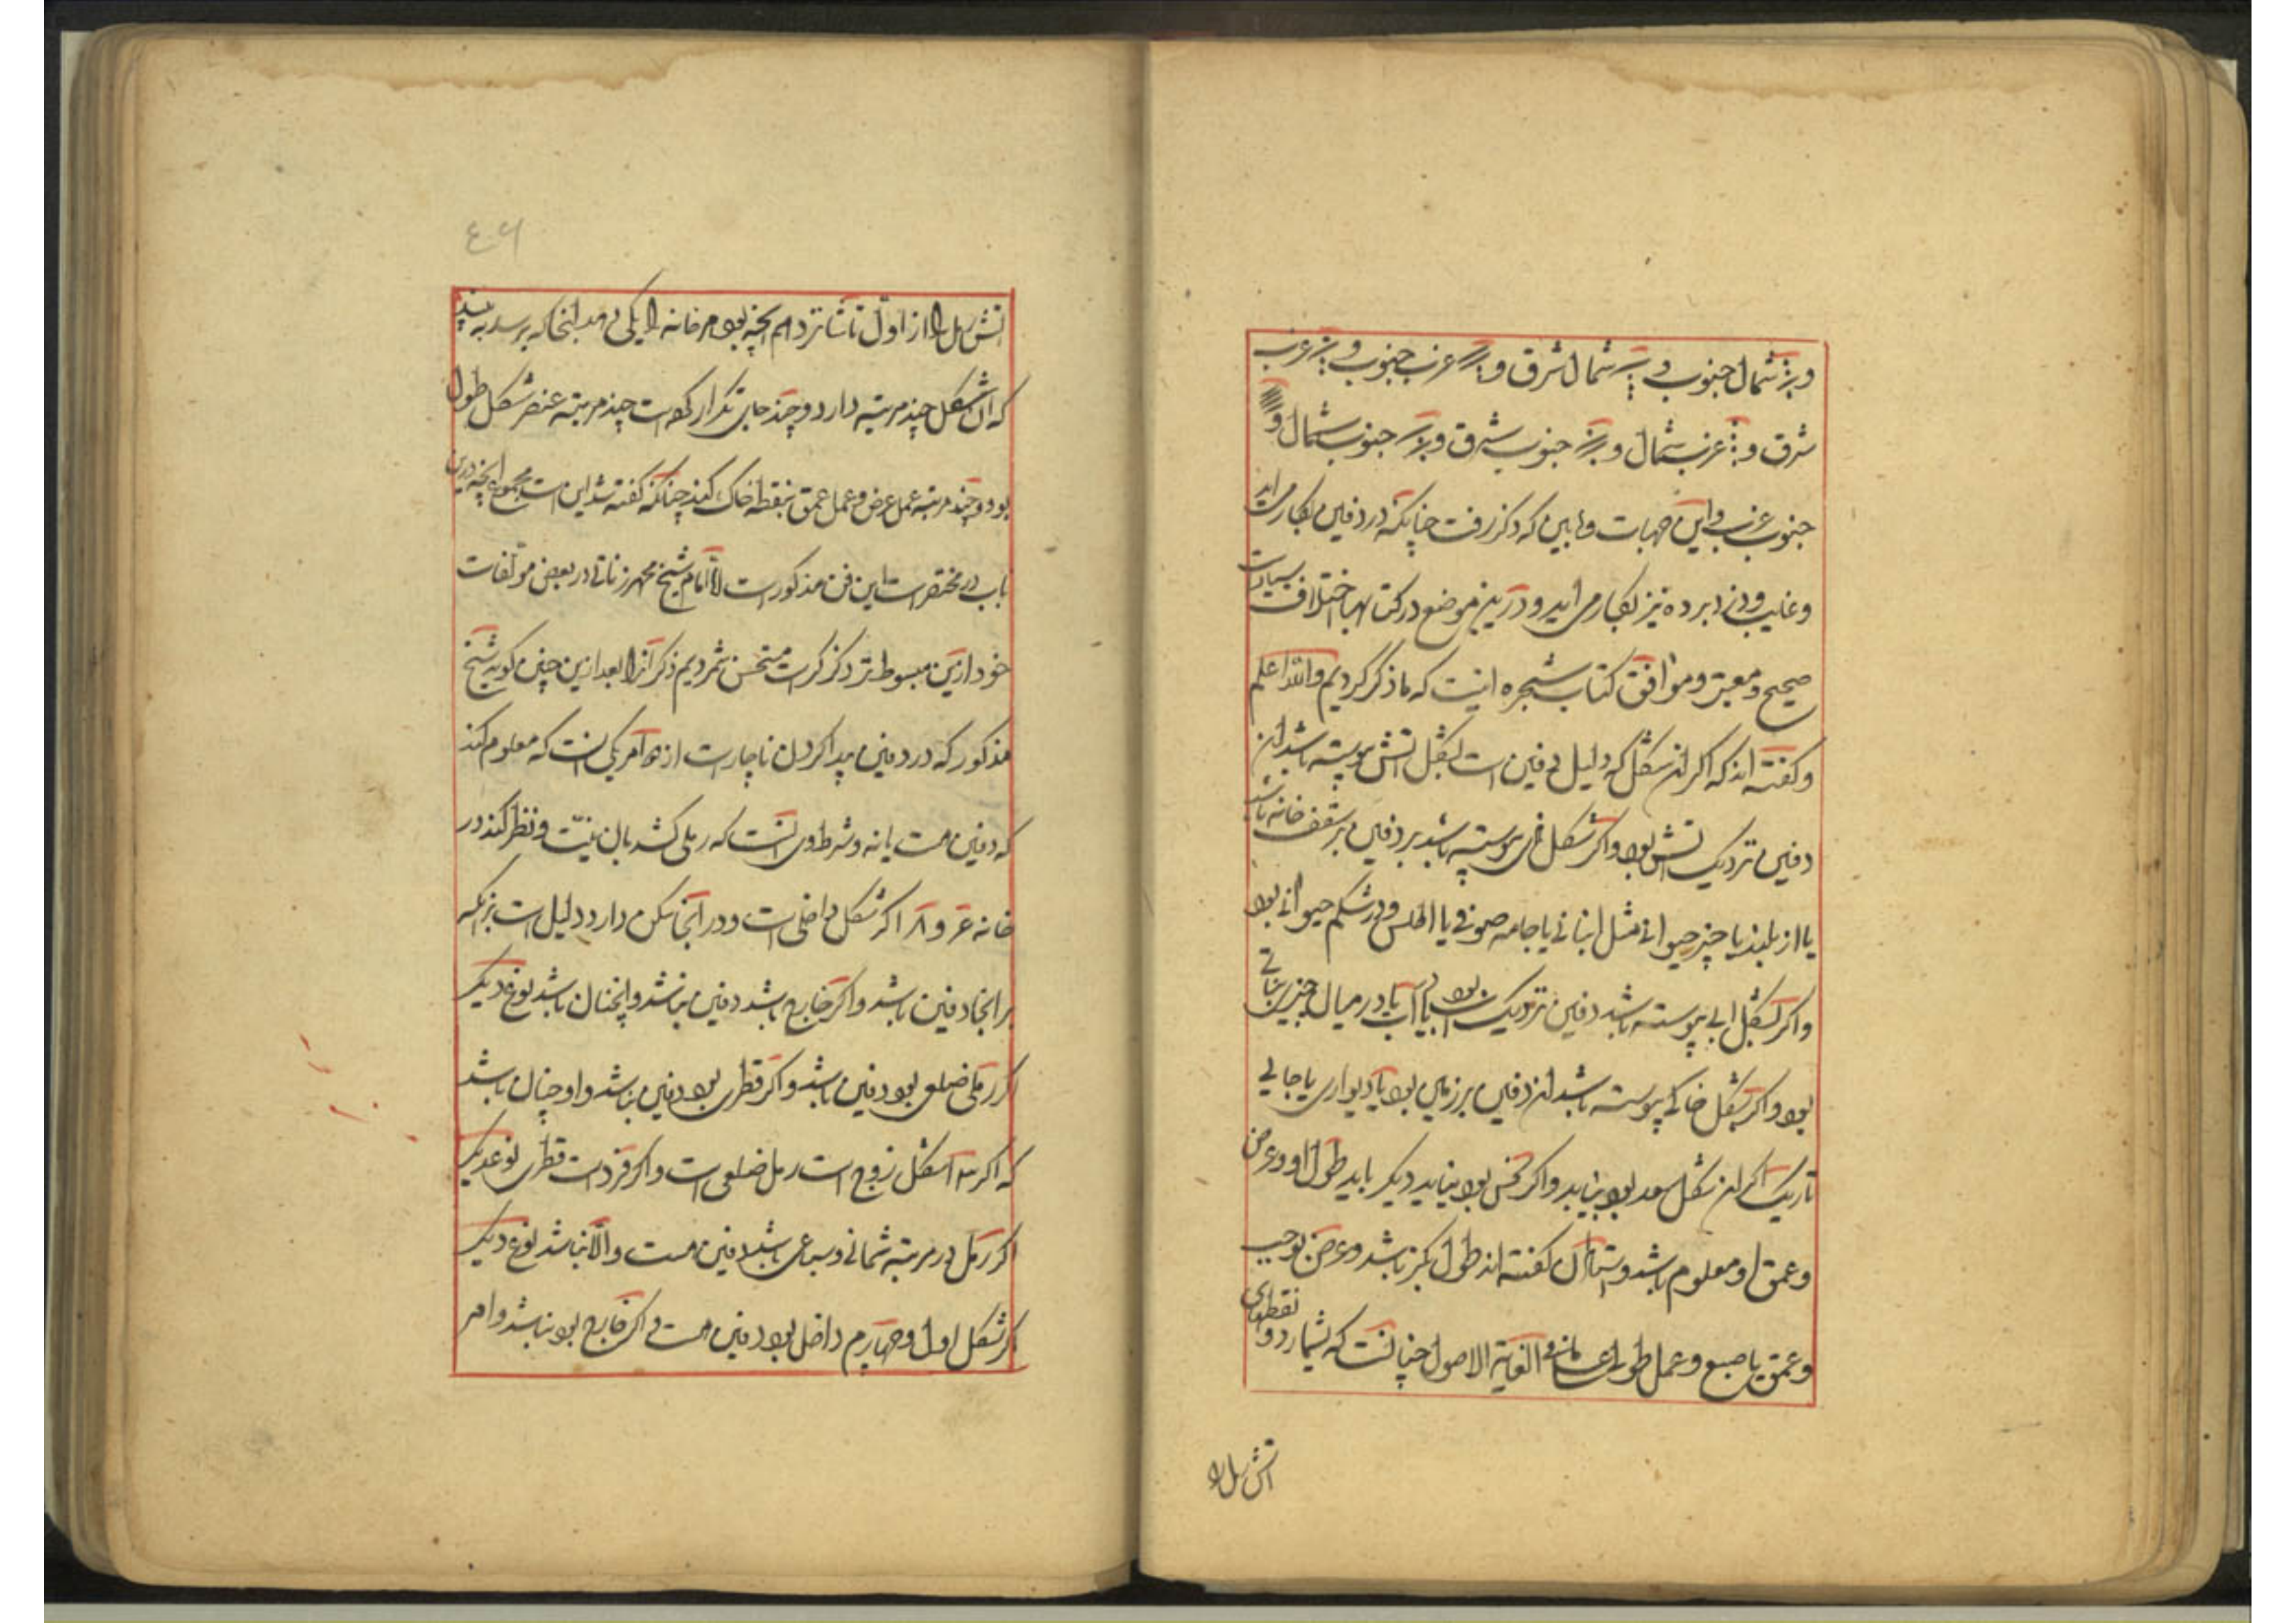 و شمال جنوب و شمال شرق و غرب جنوب و غرب
شرق و غرب شمال و جنوب شرق و جنوب شمال و
جنوب غرب و این جهات و مابین که ذکر رفت چنانکه در دفین بکار می اید
و غایب و دزد برده نیز بکار می اید و درین موضع در کتابها اختلاف بسیارست
صحیح و معتبر و موافق کتاب شجره اینست که ما ذکر کردیم والله اعلم
و کفته اند که اکر ان شکل که دلیل دفین است بشکل اتش پیوسته باشد ان
دفین نزدیک اتش بود و اکر شکل پیوسته باشد بر دفین بر سقف خانه باشد
یا از بلند یا چیز حیوانی مثل انبانی یا جامه صوفی یا اطلس و در شکم حیوانی بود
و اکر بشکل ابی پیوسته باشد دفین نزدیک اب بود یا در میان چیز نباتی
بود و اکر بشکل خاکی پیوسته باشد ان دفین بر زمین بود یا دیواری یا جائی
تاریک اکر ان شکل سعد بود بیابد و اکر نحس بود نیابد دیکر باید طول او و عرض
و عمق او معلوم باشد و استادان کفته اند طول بکز باشد و عرض بوجب
و عمق باصبع و عمل طول الغایة الاصول چنانست که بشمارد و نقطهای
اتش رمل را
اتش رمل را از اول تا شانزدهم انچه بود هر خانه را یکی دهد انجا که برسد به بیند
که ان شکل چند مرتبه دارد و چند جای تکرار کرده است چند مرتبه عنصر شکل طول
بود و چند مرتبه عمل عرض و عمل عمق بنقطه خاک کند چنانکه کفته شد این است مجموع انچه درین
باب در مختصرات این فن مذکورست اما امام شیخ محمد زناتی در بعض مولفات
خود ازین مبسوط تر ذکر کرده است مستحسن شمردیم ذکر انرا بعد ازین چنین کوید شیخ
مذکور که در دفین پیدا کردن ناچارست از امر یکی انست که معلوم کند
که دفین هست یا نه و شرط وی انست که رملی کشد بان نیت و نظر کند در
خانه و اکر شکل داخل است و در انجا تمکن دارد دلیل است بر انکه
بر انجا دفین باشد و اکر خارج باشد دفین نباشد و انچنان باشد نوع دیکر
اکر رملی ضلعی بود دفین باشد و اکر قطری بود دفین نباشد و او چنان باشد
که اکر شکل زوج است رمل ضلعی است و اکر فرد است قطری نوع دیکر
اکر رمل در مرتبه ثمانی و سباعی باشد دفین هست و الا نباشد نوع دیکر
اکر شکل اول و چهارم داخل بود دفین هست و اکر خارج بود نباشد و امر